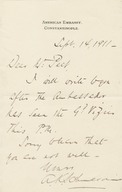 AMERICAN EMBASSY,
CONSTANTINOPLE.
Sept. 14, 1911.
Dear Mr Peet
I will write you
after the Ambassador
has seen the Gd Vizier
this P.M.
Sorry to hear that
you are not well.
Yours